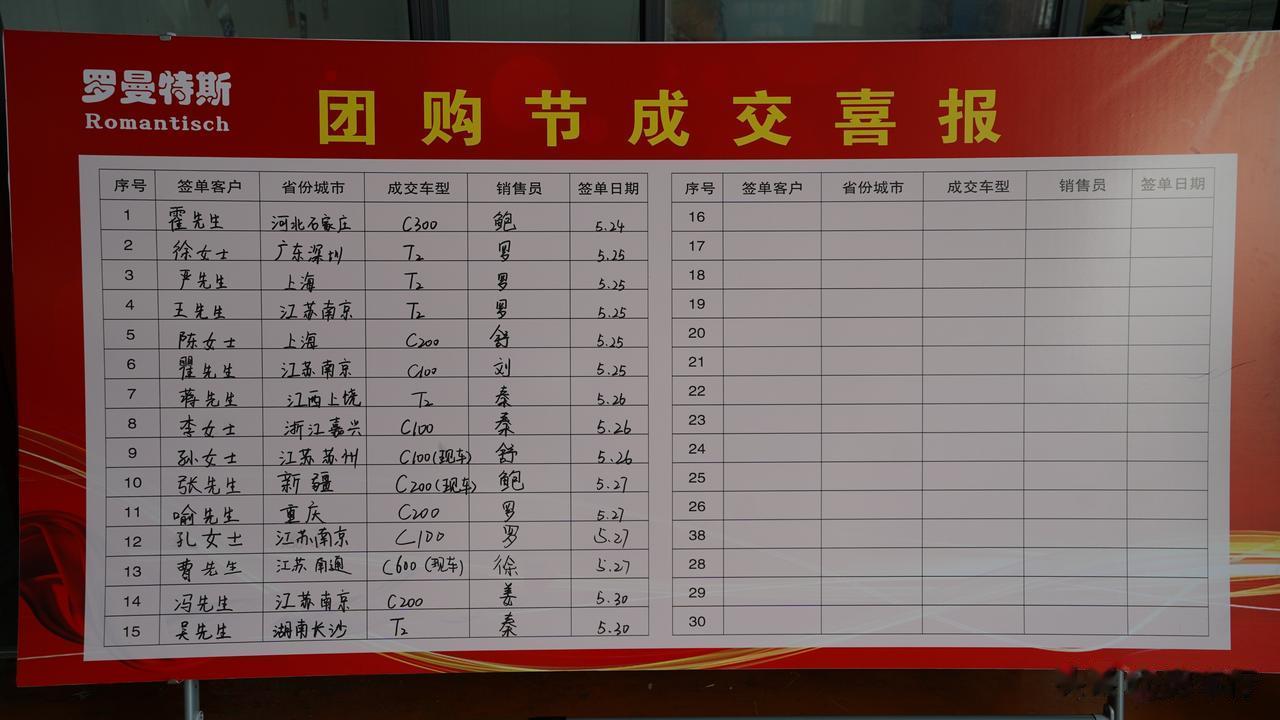 罗曼特斯
Romantisch
团购节成交喜报
序号 签单客户 省份城市 成交车型 销售员 签单日期
1 霍先生 河北石家庄 C300 鲍 5.24
2 徐女士 广东深圳 T2 罗 5.25
3 严先生 上海 T2 罗 5.25
4 王先生 江苏南京 T2 罗 5.25
5 陈女士 上海 C200 舒 5.25
6 瞿先生 江苏南京 C100 刘 5.25
7 蒋先生 江西上饶 T2 秦 5.26
8 李女士 浙江嘉兴 C100 秦 5.26
9 孙女士 江苏苏州 C100(现车) 舒 5.26
10 张先生 新疆 C200(现车) 鲍 5.27
11 喻先生 重庆 C200 罗 5.27
12 孔女士 江苏南京 C100 罗 5.27
13 曹先生 江苏南通 C600(现车) 徐 5.27
14 冯先生 江苏南京 C200 姜 5.30
15 吴先生 湖南长沙 T2 秦 5.30
序号 签单客户 省份城市 成交车型 销售员 签单日期
16
17
18
19
20
21
22
23
24
25
26
38
28
29
30